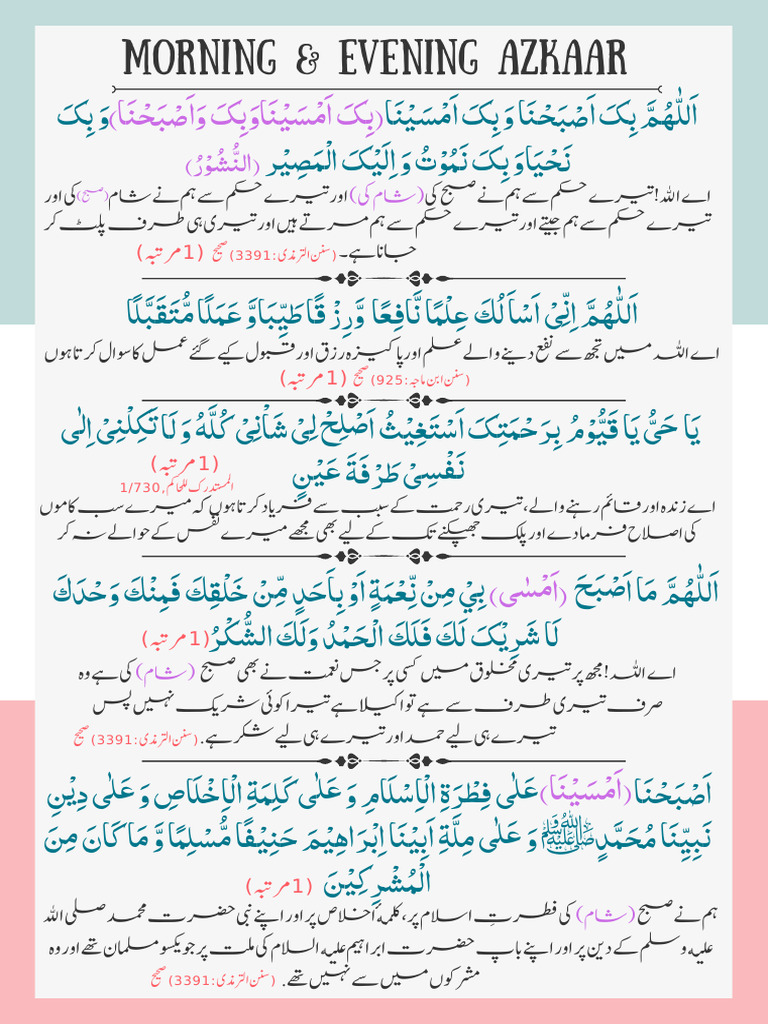 MORNING & EVENING AZKAAR
اَللّٰهُمَّ بِکَ اَصْبَحْنَا وَبِکَ اَمْسَیْنَا(بِکَ اَمْسَیْنَاوَبِکَ وَاَصْبَحْنَا)وَبِکَ
نَحْیَاوَ بِکَ نَمُوْتُ وَاِلَیْکَ الْمَصِیْر (النُّشُوْرُ)
اے اللہ! تیرے حکم سے ہم نے صبح کی(شام کی) اور تیرے حکم سے ہم نے شام(صبح)کی اور
تیرے حکم سے ہم جیتے اور تیرے حکم سے ہم مرتے ہیں اور تیری ہی طرف پلٹ کر
جانا ہے۔ (سنن الترمذی:3391) صحیح (1 مرتبہ)
اَللّٰهُمَّ اِنِّیْ اَسْاَلُكَ عِلْمًا نَّافِعًا وَّرِزْ قًا طَیِّبًاوَّ عَمَلًا مُّتَقَبَّلًا
اے اللہ میں تجھ سے نفع دینے والے علم اور پاکیزہ رزق اور قبول کیے گئے عمل کا سوال کرتا ہوں
(سنن ابن ماجہ:925) صحیح (1 مرتبہ)
یَا حَیُّ یَا قَیُّوْمُ بِرَحْمَتِکَ اَسْتَغِیْثُ اَصْلِحْ لِیْ شَاْنِیْ کُلَّهُ وَلَا تَکِلْنِیْ اِلٰی
نَفْسِیْ طَرْفَةَ عَیْنٍ (1 مرتبہ)
المستدرک للحاکم,1/730
اے زندہ اور قائم رہنے والے، تیری رحمت کے سبب سے فریاد کرتا ہوں کہ میرے سب کاموں
کی اصلاح فرما دے اور پلک جھپکنے تک کے لیے بھی مجھے میرے نفس کے حوالے نہ کر
اَللّٰهُمَّ مَا اَصْبَحَ (اَمْسٰی) بِيْ مِنْ نِّعْمَةٍ اَوْ بِاَحَدٍ مِّنْ خَلْقِكَ فَمِنْكَ وَحْدَكَ
لَا شَرِیْکَ لَكَ فَلَكَ الْحَمْدُ وَلَكَ الشُّکْرُ(1 مرتبہ)
اے اللہ! مجھ پر تیری مخلوق میں کسی پر جس نعمت نے بھی صبح (شام) کی ہے وہ
صرف تیری طرف سے ہے تو اکیلا ہے تیرا کوئی شریک نہیں پس
تیرے ہی لیے حمد اور تیرے ہی لیے شکر ہے. (سنن الترمذی:3391) صحیح
اَصْبَحْنَا(اَمْسَیْنَا)عَلٰی فِطْرَةِ الْاِسْلَامِ وَ عَلٰی کَلِمَةِ الْاِخْلَاصِ وَ عَلٰی دِیْنِ
نَبِیِّنَا مُحَمَّدٍﷺ وَ عَلٰی مِلَّةِ اَبِیْنَا اِبْرَاهِیْمَ حَنِیْفًا مُّسْلِمًا وَّ مَا کَانَ مِنَ
الْمُشْرِکِیْنَ (1 مرتبہ)
ہم نے صبح (شام) کی فطرتِ اسلام پر، کلمہ اخلاص پر اور اپنے نبی حضرت محمد صلی اللہ
علیه وسلم کے دین پر اور اپنے باپ حضرت ابراہیم علیه السلام کی ملت پر جو یکسو مسلمان تھے اور وہ
مشرکوں میں سے نہیں تھے. (سنن الترمذی:3391) صحیح